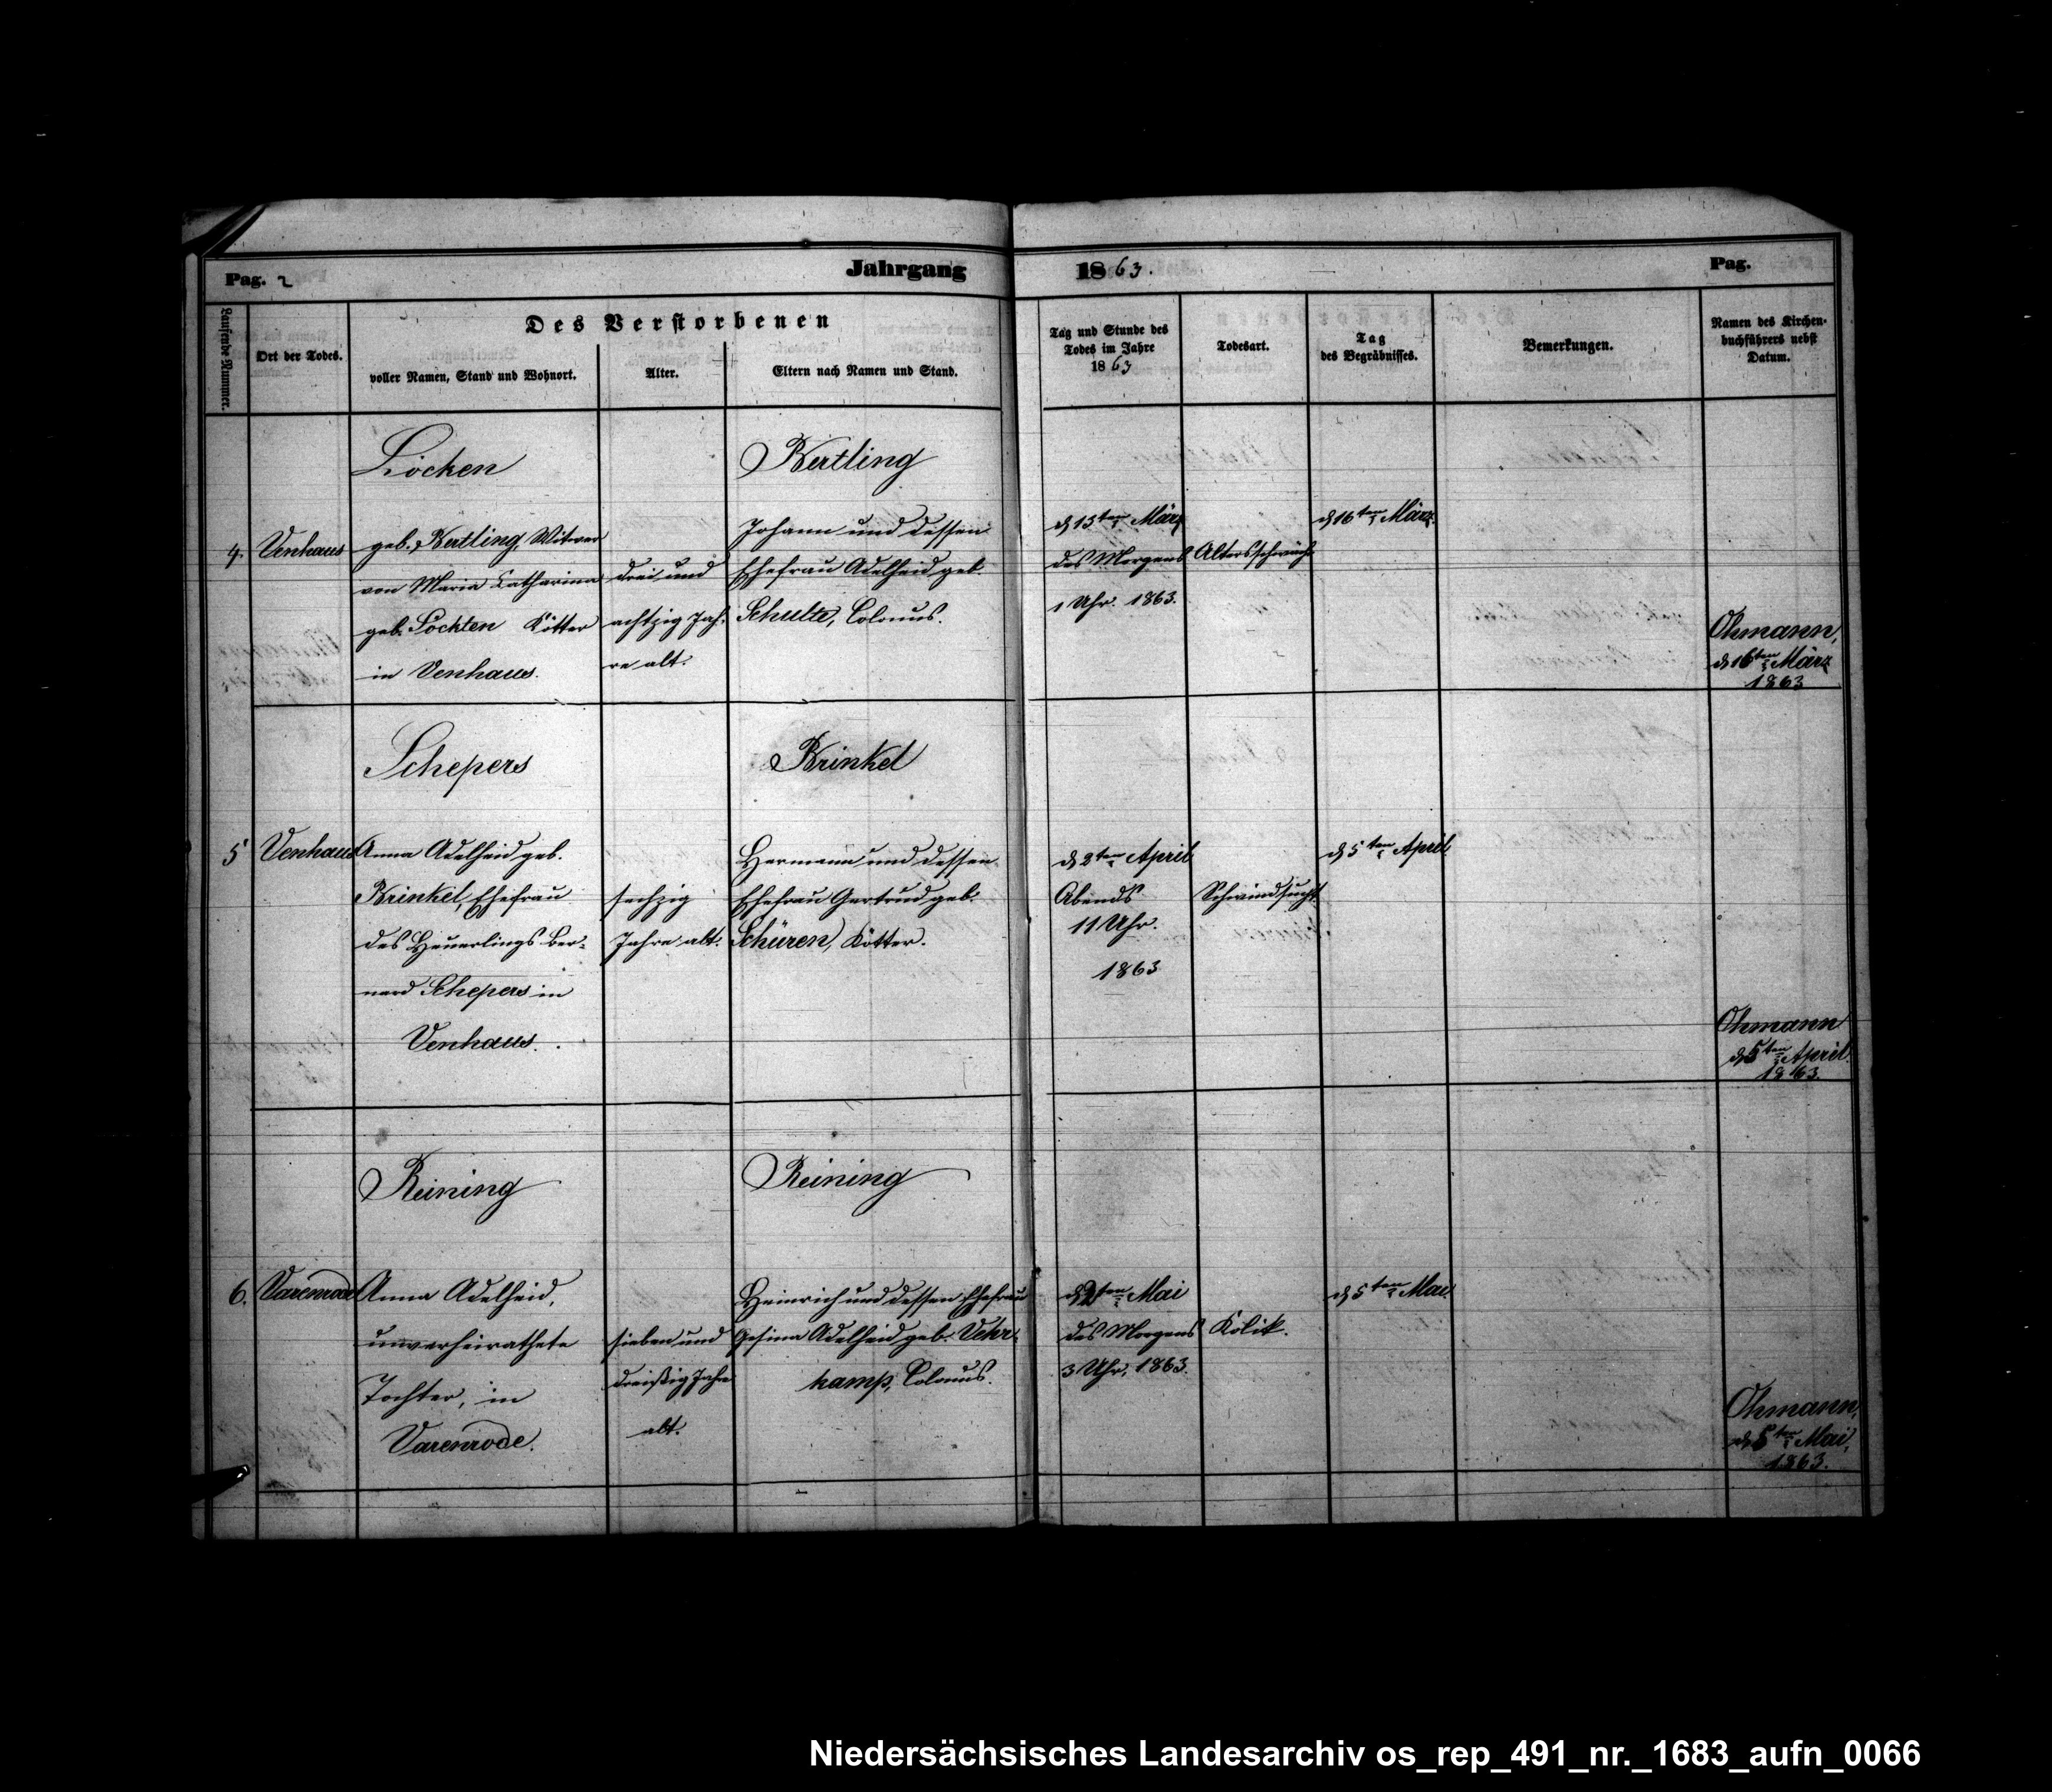 Pag. 2
Jahrgang
1863.
Pag.
Laufende Nummer.
Ort der Todes.
Des Verstorbenen
voller Namen, Stand und Wohnort.
Alter.
Eltern nach Namen und Stand.
Tag und Stunde des
Todes im Jahre
1863
Todesart.
Tag
des Begräbnisses.
Bemerkungen.
Namen des Kirchen-
buchführers nebst
Datum.
4.
Venhaus
Löcken
geb. Bertling, Witwer
von Maria Catharina
geb. Köttter
in Venhaus.
drei und
achtzig Jah-
re alt.
Bertling
Johann und dessen
Ehefrau Adelheid geb.
Schulte, Colonus.
d 13ten März
des Morgens
1 Uhr. 1863.
Altersschwäche
d 16ten März.
Ohmann,
d 16ten März
1863
5
Venhaus
Schepers
Anna Adelheid geb.
Brinkel, Ehefrau
des Heuerlings Ber-
nard Schepers in
Venhaus.
sechzig
Jahre alt.
Brinkel
Hermann und dessen
Ehefrau Gertrud geb.
Schüren, Kötter.
d 2ten April
Abends
11 Uhr.
1863
Schwindsucht
d 5ten April
Ohmann
d 5ten April
1863.
6.
Varenrode
Reining
Anna Adelheid,
unverheirathete
Tochter, in
Varenrode.
sieben und
dreißig Jahre
alt.
Reining
Heinrich und dessen Ehefrau
Gesina Adelheid geb. Vehr-
kamp, Colonus.
d 2ten Mai
des Morgens
3 Uhr, 1863.
Kolik.
d 5ten Mai.
Ohmann,
d 5ten Mai,
1863.
Niedersächsisches Landesarchiv os_rep_491_nr._1683_aufn_0066